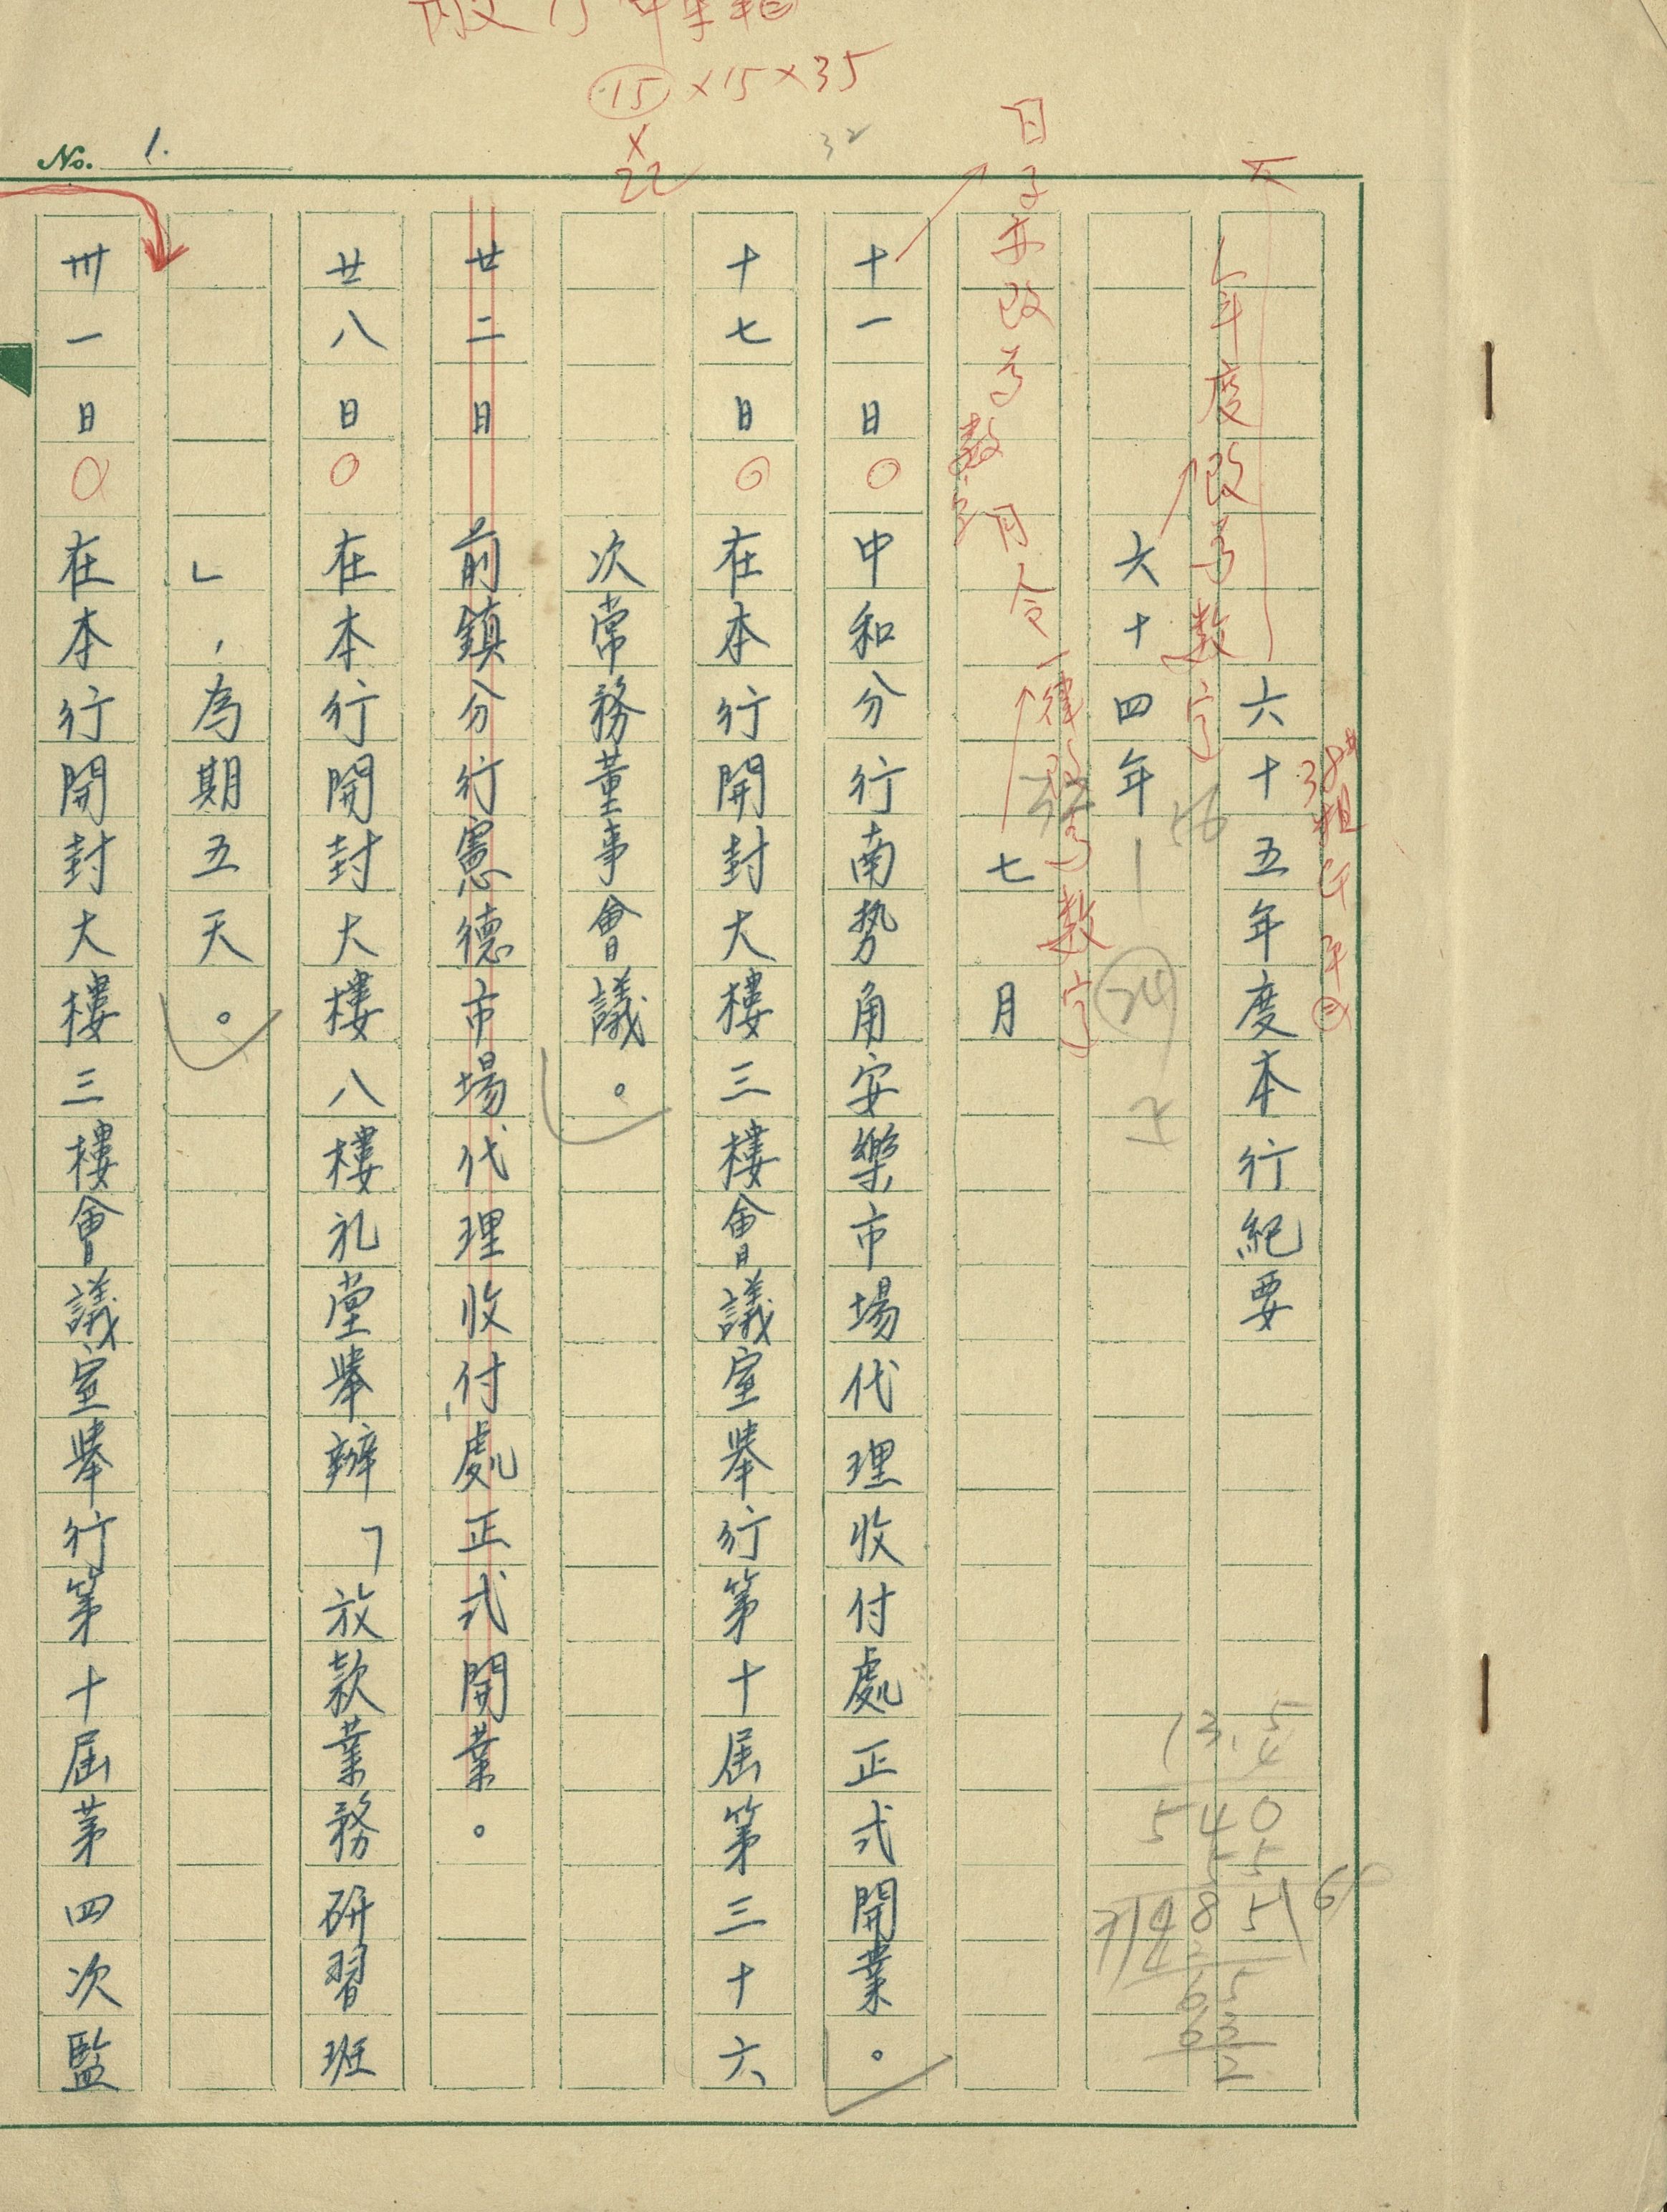 15 × 15 × 35
× 22
32
No. 1.
六十五年度本行紀要
年度改為數字
六十四年
七月
日子亦改為數字
月令一律改為數字
十一日 中和分行南勢角安樂市場代理收付處正式開業。
十七日 在本行開封大樓三樓會議室舉行第十屆第三十六
次常務董事會議。
廿二日 前鎮分行憲德市場代理收付處正式開業。
廿八日 在本行開封大樓八樓礼堂舉辦「放款業務研習班
」,為期五天。
卅一日 在本行開封大樓三樓會議室舉行第十屆第四次監
13.5
4
540
55
7 485 6
42
65
63
2